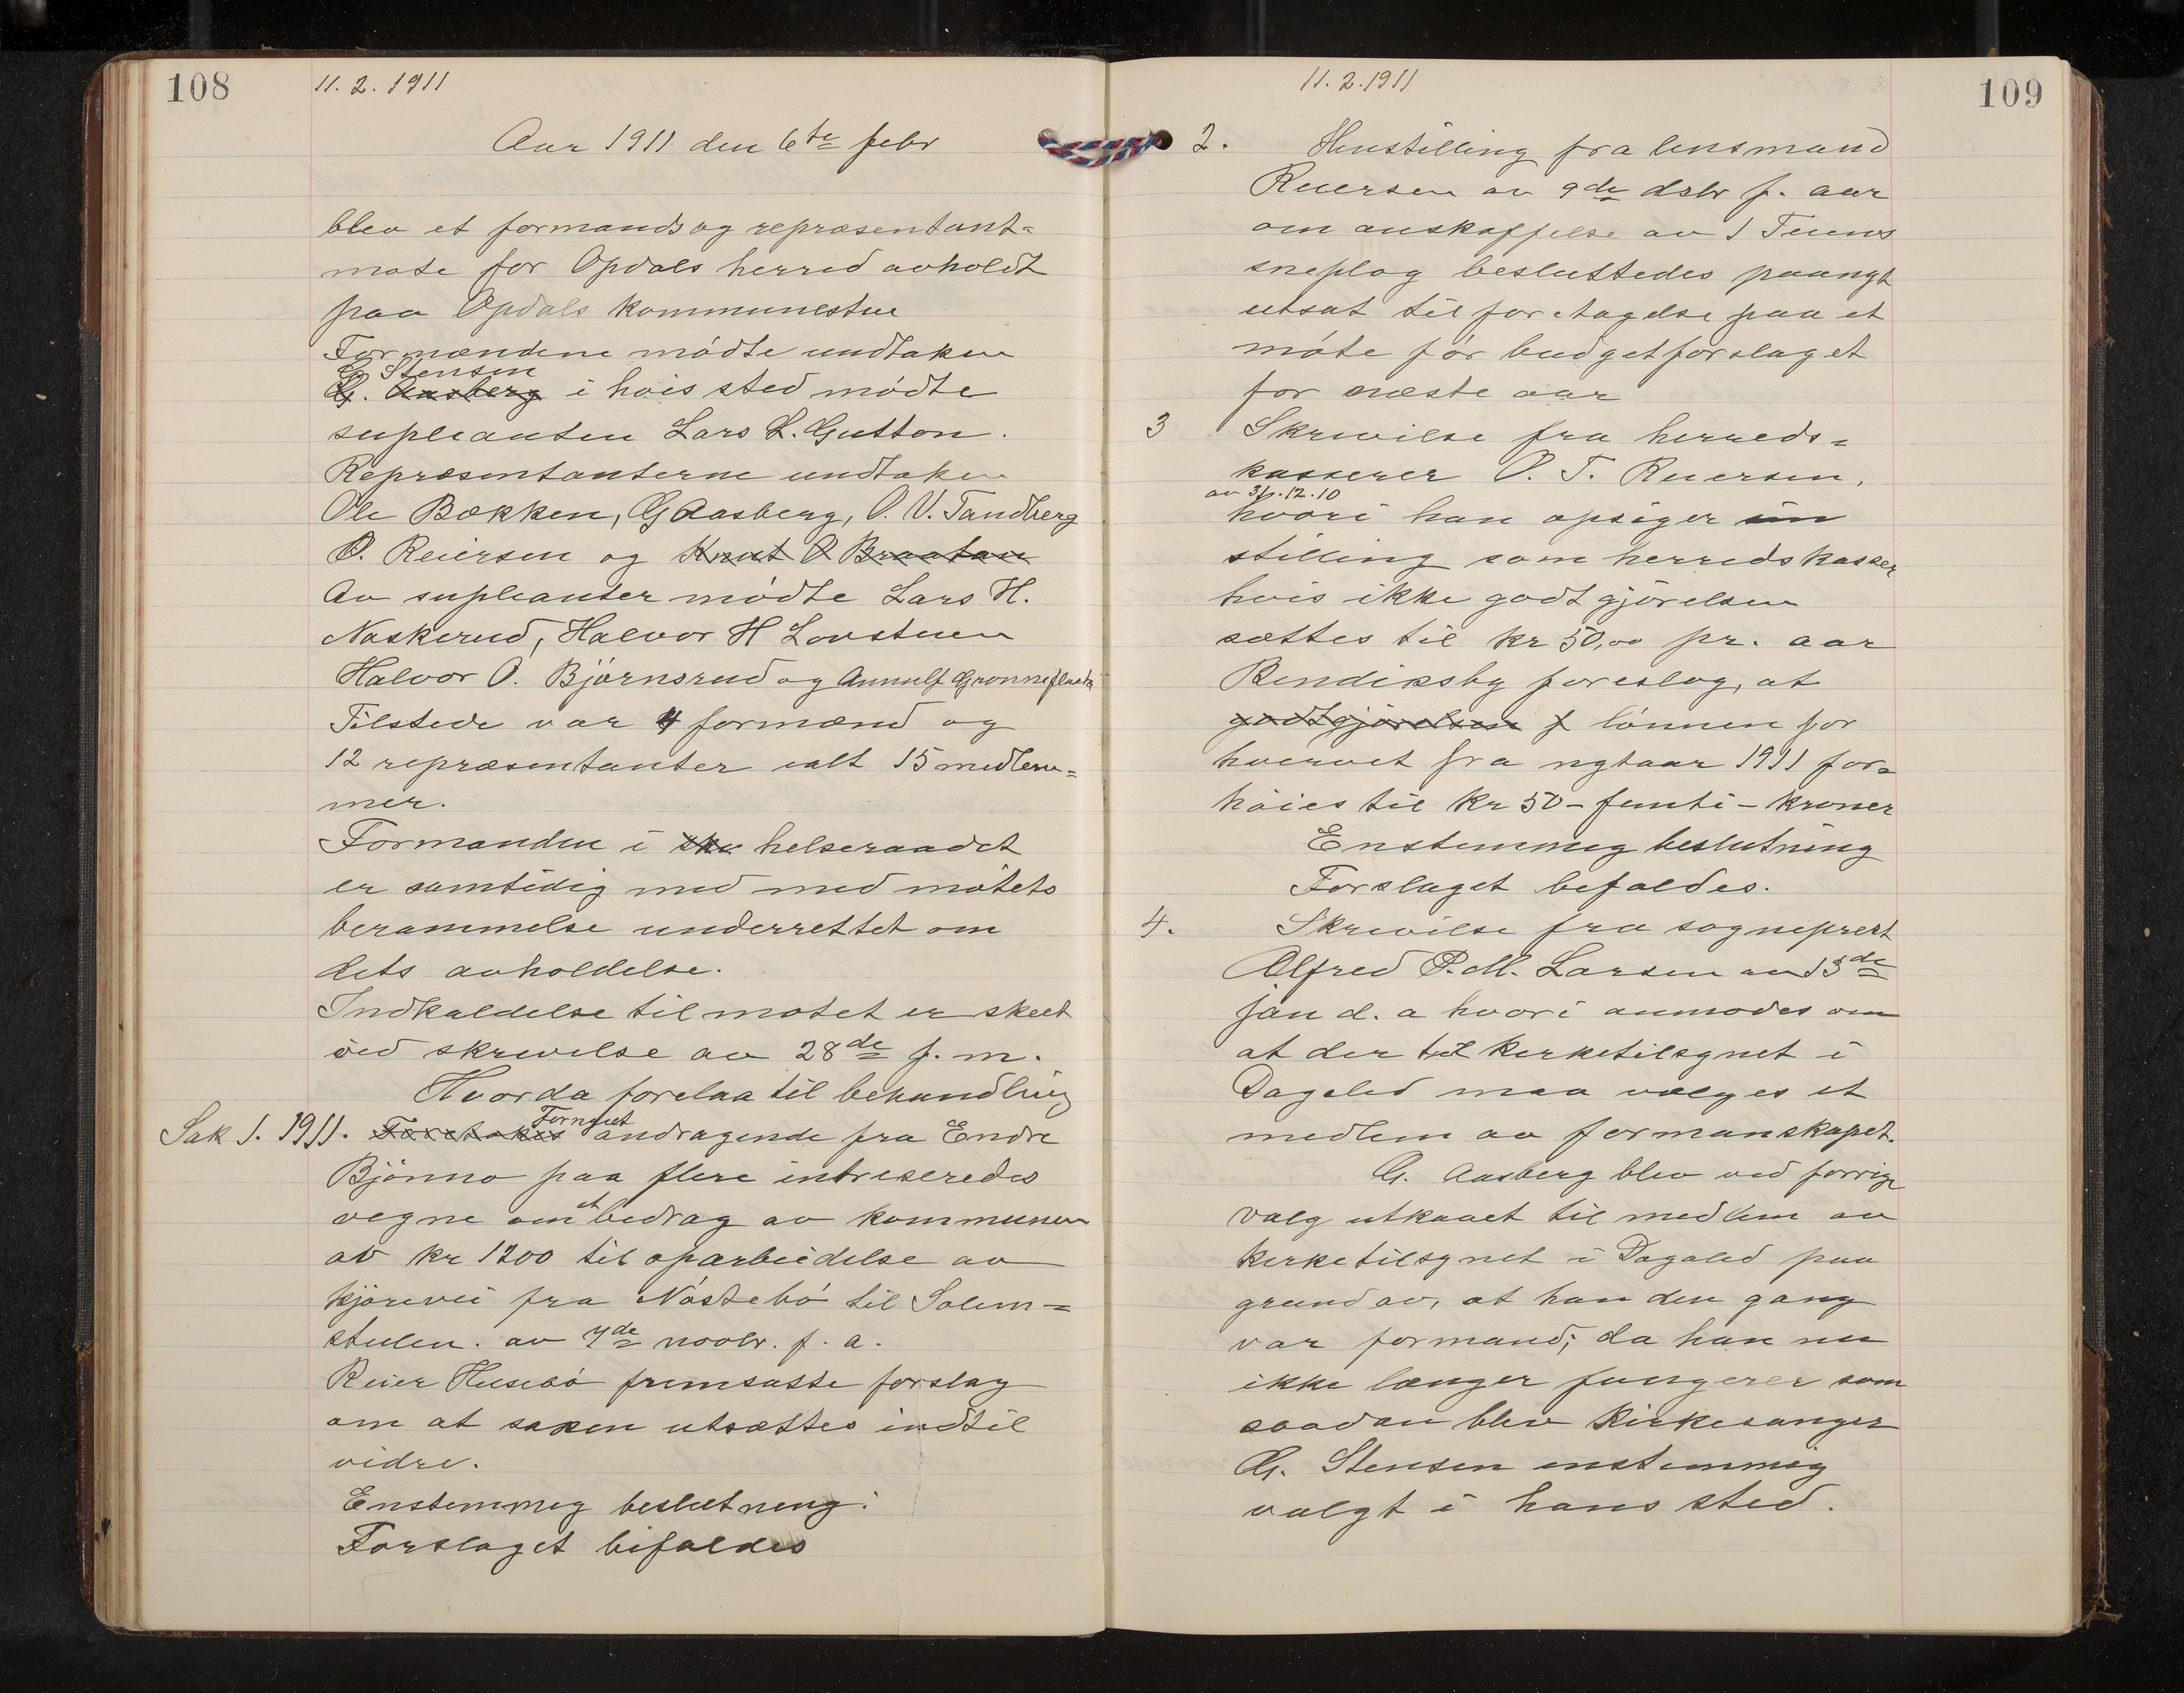 108
11. 2. 1911
Aar 1911 den 6te febr
blev et formands og repræsentant=
møte for Opdals herred avholdt
paa Opdals kommunestue
Formændene mødte undtaken
G Stensen
G. Aasberg i hvis sted mødte
supleanten Lars L. Gutton.
Repræsentanterne undtaken
Ole Bækken, G Aasberg, O. V. Tandberg
O. Reiersen og Knut O Braaten
Av supleanter mødte Lars H.
Naskerud, Halvor H Lovstuen
Halvor O. Bjørnsrud og Annulf Grønneflaata
Tilstede var 4 formænd og
12 repræsentanter ialt 15 medlem=
mer.
Formanden i helseraadet
er samtidig med med møtets
berammelse underrettet om
dets avholdelse.
Indkaldelse til møtet er skeet
ved skrivelse av 28de f. m.
Hvorda forelaa til behandling
Sak 1. 1911. Foretokes Fornyet andragende fra Endre
Bjønno paa flere intreseredes
vegne om et bedrag av kommunen
av kr 1200 til oparbeidelse av
kjørevei fra Nøstebø til Solem=
stulen. av 7de novbr. f. a.
Reier Husebø fremsatte forslag
om at saken utsættes indtil
vidre.
Enstemmig beslutning:
Forslaget bifaldes
109
11. 2. 1911
2. Henstilling fra lensmand
Reiersen av 9de dsbr f. aar
om anskaffelse av 1
sneplog besluttedes paanyt
utsat til foretagelse paa et
møte før budgetforslaget
for næste aar
3 Skrivilse fra herreds=
kasserer O. T. Reiersen,
av 31.12.10
hvori han opsiger sin
stilling som herredskasser
hvis ikke godtgjørelsen
sættes til kr 50,00 pr. aar
Bendiksby foreslog, at
godtgjørelsen f lønnen for
hvervet fra nytaar 1911 for=
høies til kr 50 - femti - kroner
Enstemmig beslutning
Forslaget befaldes.
4. Skrivilse fra sogneprest
Alfred P. M. Larsen av 13de
jan d. a hvori anmodes om
at der til kerketilsynet i
Dagalid maa vælges et
medlem av formanskapet.
G. Aasberg blev ved forrige
valg utkaaet til medlem av
kerketilsynet i Dagalid paa
grund av, at han den gang
var formand; da han nu
ikke længer fungerer som
saadan blev kirkesanger
G. Stensen enstemmig
valgt i hans sted.